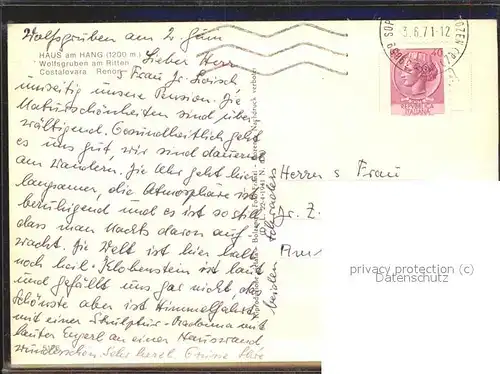 Wolfsgruben am 2. Juni
HAUS am HANG (1200 m.)
Wolfsgruben am Ritten
Costalovara Renon
Lieber Herr
s Frau Dr. Loisch
umseitig unsere Pension. Die
Naturschönheiten sind über-
wältigend. Gesundheitlich geht
es uns gut, wir sind dauernd
am Wandern. Die Uhr geht hier
langsamer, die Atmosphäre ist
beruhigend und es ist so still
dass man Nachts davon auf-
wacht. Die Welt ist hier halt
noch heil. Klobenstein ist laut
und gefällt uns gar nicht, das
Schönste aber ist Himmelfahrt
mit einer Skulptur-Madonna mit
lauter Engerl an einer Hauswand
wunderschön. Sehr herzl. Grüsse Ihre
beiden Schraders
3.6.71-12
40
REPUBBLICA
ITALIANA
Herrn s Frau
Dr. Z.
privacy protection (c)
Datenschutz